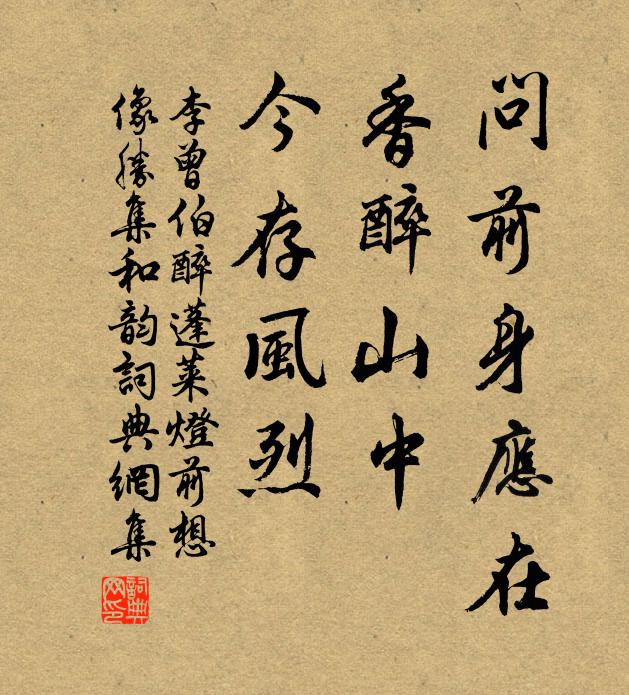 問前身應在
香醉山中
今存風烈
李曾伯醉蓬萊燈前想
像勝集和韵詞典網集
詞典網印